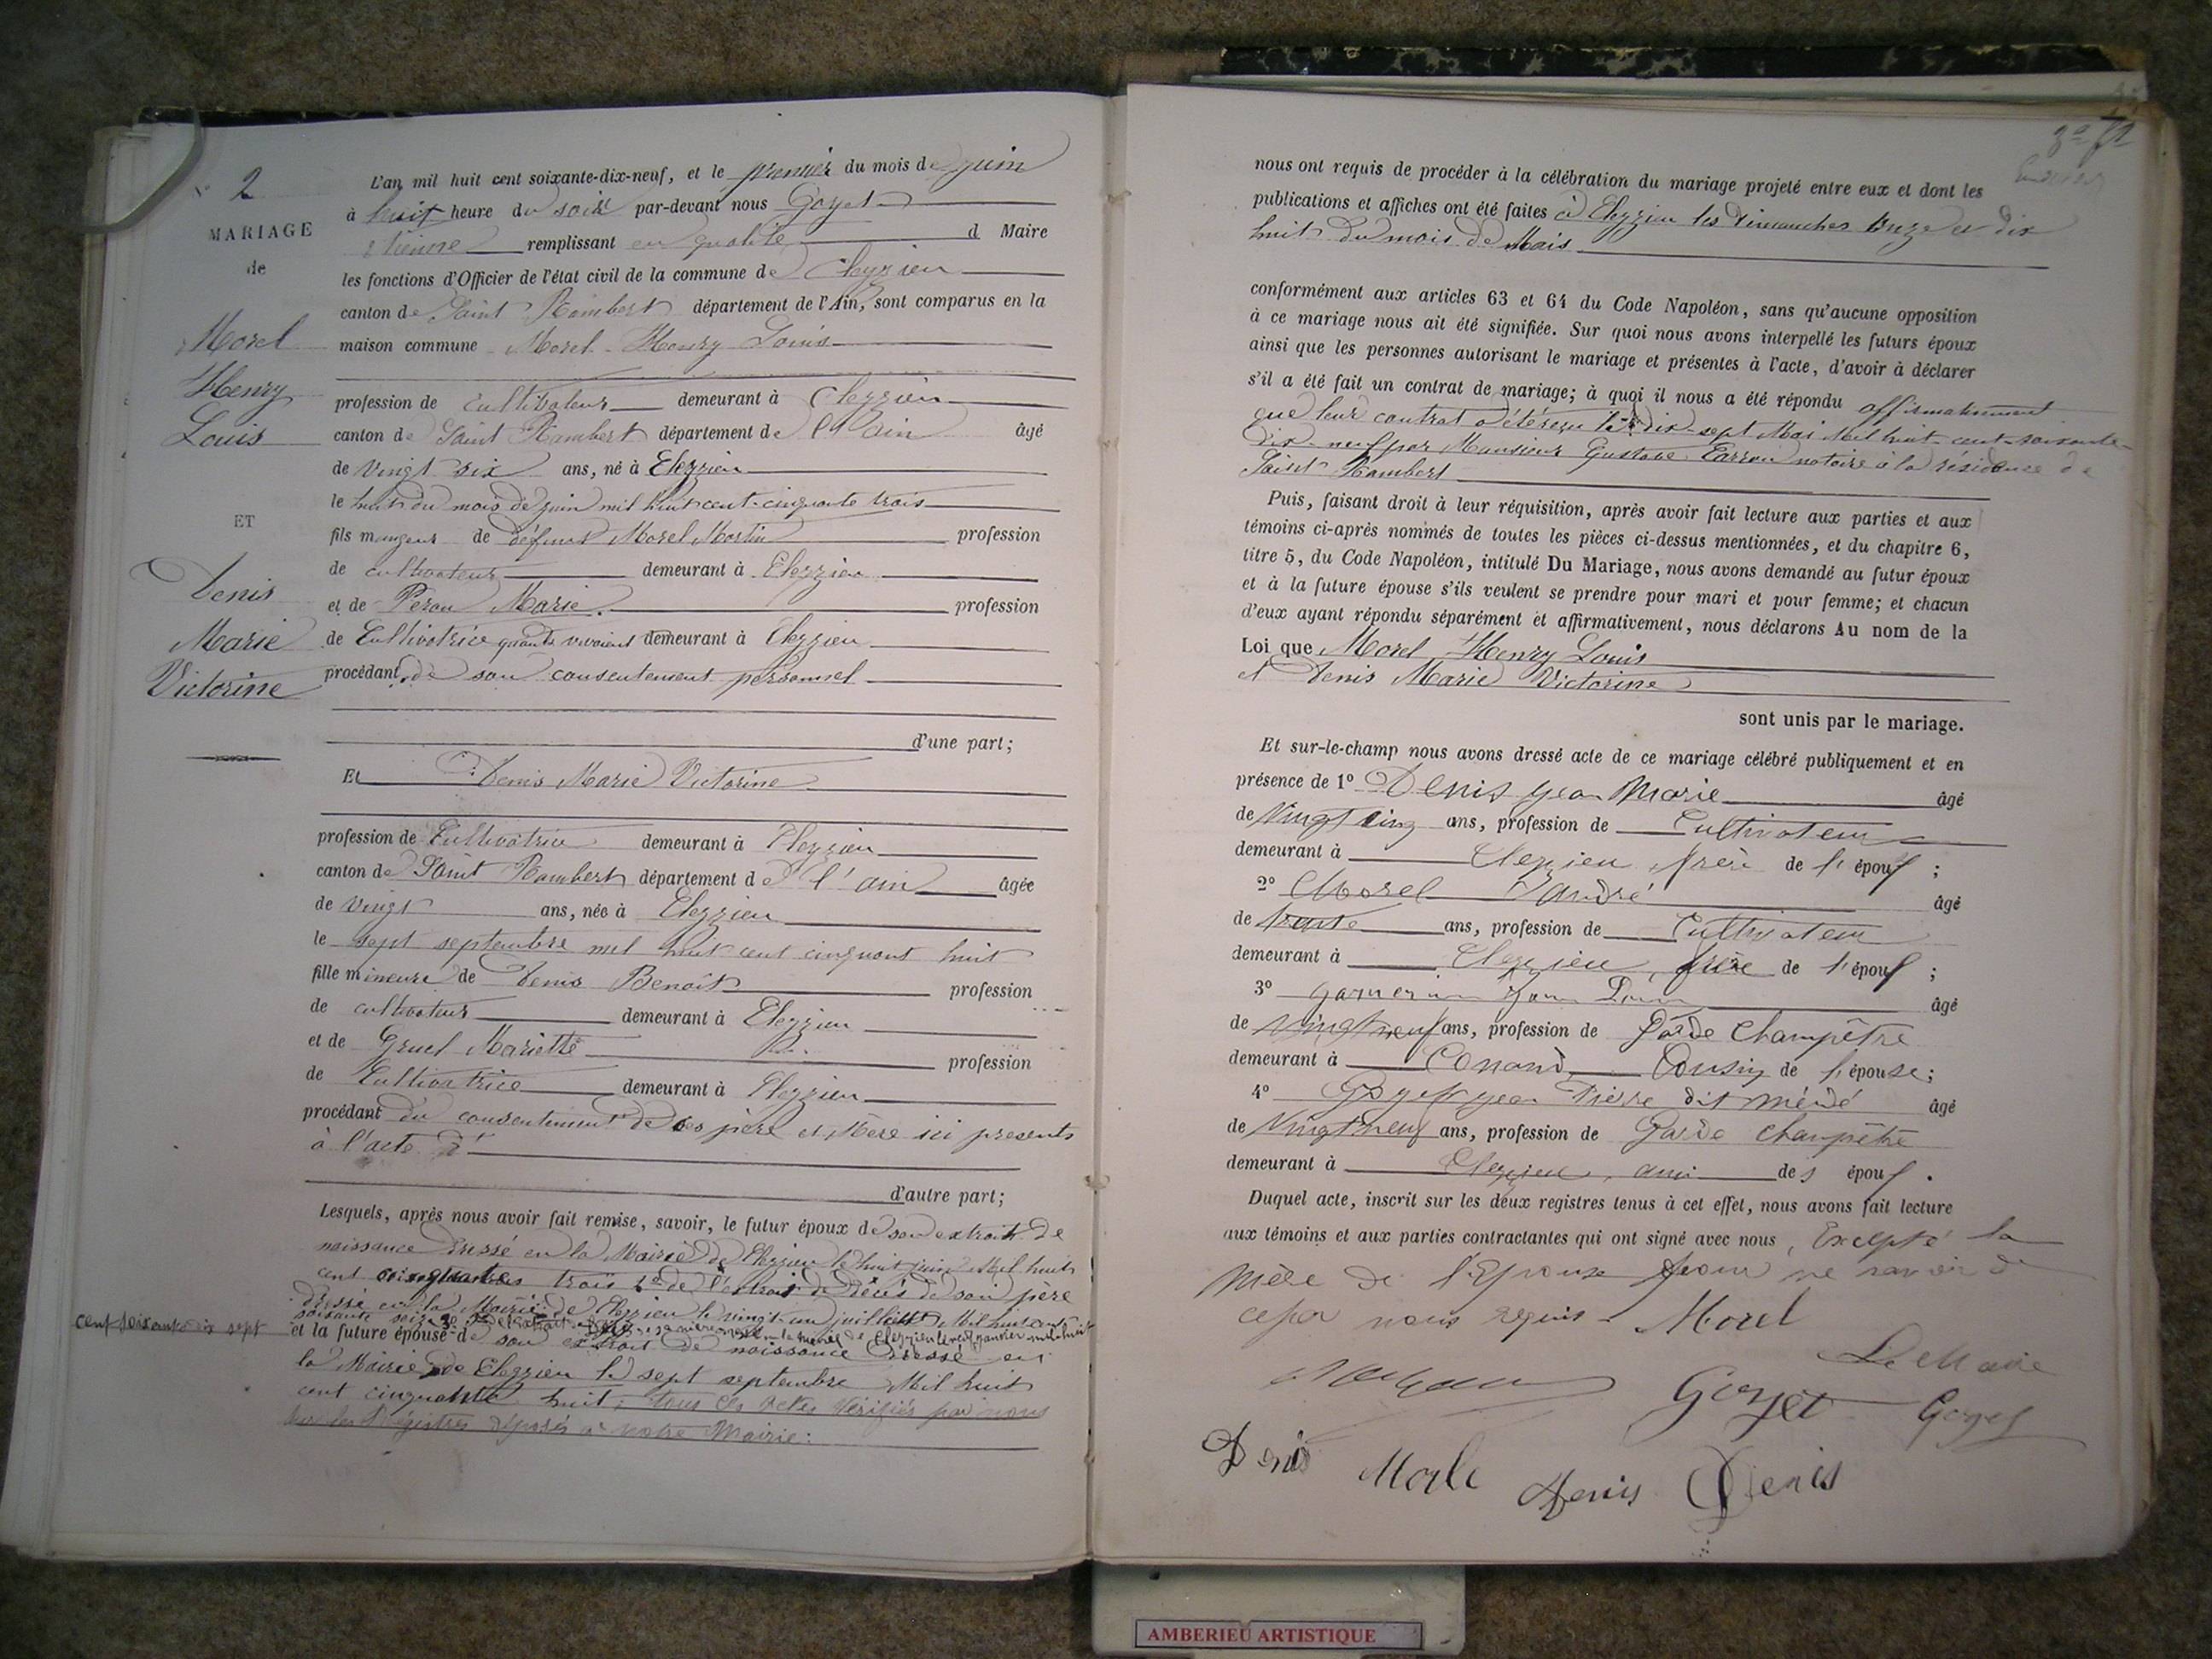 N° 2
MARIAGE
de
Morel
Henry
Louis
ET
Denis
Marie
Victorine
L'an mil huit cent soixante-dix-neuf, et le premier du mois de juin
à huit heure du soir par-devant nous Goyet
Etienne remplissant en qualité d Maire
les fonctions d'Officier de l'état civil de la commune de Cleyzieu
canton de Saint Rambert département de l'Ain, sont comparus en la
maison commune Morel Henry Louis
profession de Cultivateur demeurant à Cleyzieu
canton de Saint Rambert département de l'ain âgé
de vingt six ans, né à Cleyzieu
le huit du mois de juin mil huit cent cinquante trois
fils majeur de défunt Morel Martin profession
de cultivateur demeurant à Cleyzieu
et de Marie profession
de Cultivatrice demeurant à Cleyzieu
procédant de son consentement personnel
d'une part;
Et Denis Marie Victorine
profession de Cultivatrice demeurant à Cleyzieu
canton de Saint Rambert département d e l'ain âgée
de vingt ans, née à Cleyzieu
le sept septembre mil huit cent cinquant huit
fille mineure de Denis Benoit profession
de cultivateur demeurant à Cleyzieu
et de Gruel Mariette profession
de Cultivatrice demeurant à Cleyzieu
procédant du consentement de ses père et Mère ici presents
à l'acte
d'autre part;
Lesquels, après nous avoir fait remise, savoir, le futur époux de son extrait de
naissance dressé en la Mairie de Cleyzieu le huit juin Mil huit
cent cinquante trois 2° de l'extrait de décès de son père
dressé en la Mairie de Cleyzieu le vingt un juillet Mil huit cent
soixante seize 3° de l'extrait la mairie de Cleyzieu janvier mil huit
cent soixante dix sept et la future épouse de son extrait de naissance dressé en
la Mairie de Cleyzieu le sept septembre Mil huit
cent cinquante huit, tous les actes vérifiés par nous
sur les Régistres déposés à notre Mairie:
nous ont requis de procéder à la célébration du mariage projeté entre eux et dont les
publications et affiches ont été faites à Cleyzieu les Dimanches onze et dix
huit du mois de Mais
conformément aux articles 63 et 64 du Code Napoléon, sans qu'aucune opposition
à ce mariage nous ait été signifiée. Sur quoi nous avons interpellé les futurs époux
ainsi que les personnes autorisant le mariage et présentes à l'acte, d'avoir à déclarer
s'il a été fait un contrat de mariage; à quoi il nous a été répondu affirmativement
que leur contrat a été reçu le dix-sept Mai Mil huit-cent-soixante-
dix-neuf par Monsieur Gustave notaire à la résidence de
Saint Rambert
Puis, faisant droit à leur réquisition, après avoir fait lecture aux parties et aux
témoins ci-après nommés de toutes les pièces ci-dessus mentionnées, et du chapitre 6,
titre 5, du Code Napoléon, intitulé Du Mariage, nous avons demandé au futur époux
et à la future épouse s'ils veulent se prendre pour mari et pour femme; et chacun
d'eux ayant répondu séparément et affirmativement, nous déclarons Au nom de la
Loi que Morel Henry Louis
et Denis Marie Victorine
sont unis par le mariage.
Et sur-le-champ nous avons dressé acte de ce mariage célébré publiquement et en
présence de 1° Denis jean Marie âgé
de Vingt cinq ans, profession de Cultivateur
demeurant à Cleyzieu, frère de l'épous ;
2° Morel andré âgé
de trente ans, profession de Cultivateur
demeurant à Cleyzieu, frère de l'épous ;
3° Jean Louis âgé
de vingt neuf ans, profession de Garde Champêtre
demeurant à Conand Cousin de l'épouse;
4° Goyet jean Pierre dit âgé
de Vingt neuf ans, profession de Garde champêtre
demeurant à Cleyzieu, ami des épous .
Duquel acte, inscrit sur les deux registres tenus à cet effet, nous avons fait lecture
aux témoins et aux parties contractantes qui ont signé avec nous, Excepté la
Mère de l'Epouse pour ne savoir de
ce par nous requis Morel
Le Maire
Goyet Goyet
Denis Morle Denis Denis
AMBERIEU ARTISTIQUE